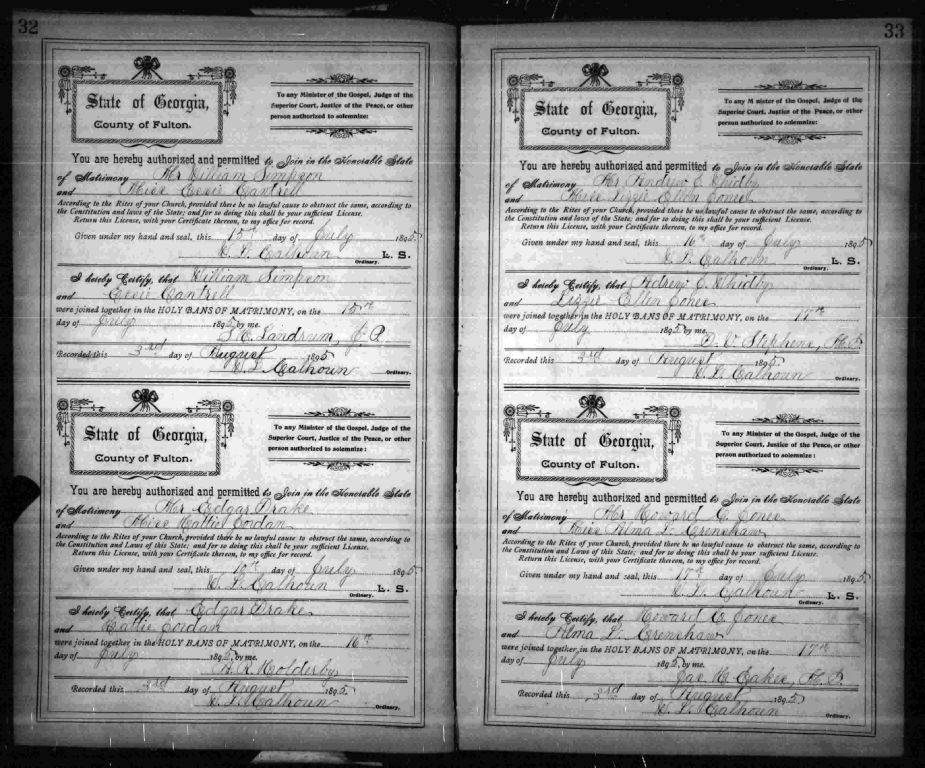 32
State of Georgia,
County of Fulton.
To any Minister of the Gospel, Judge of the
Superior Court, Justice of the Peace, or other
person authorized to solemnize:
You are hereby authorized and permitted to Join in the Honorable State
of Matrimony Mr William Simpson
and Miss Essie Cantrell
According to the Rites of your Church, provided there be no lawful cause to obstruct the same, according to
the Constitution and laws of the State; and for so doing this shall be your sufficient License.
Return this License, with your Certificate thereon, to my office for record.
Given under my hand and seal, this 15th day of July 1895
W. L. Calhoun L. S.
Ordinary.
I hereby Certify, that William Simpson
and Essie Cantrell
were joined together in the HOLY BANS OF MATRIMONY, on the 15th
day of July 1895 by me.
Landrum, J P.
Recorded this 3rd day of August 1895
W. L. Calhoun Ordinary.
State of Georgia,
County of Fulton.
To any Minister of the Gospel, Judge of the
Superior Court, Justice of the Peace, or other
person authorized to solemnize:
You are hereby authorized and permitted to Join in the Honorable State
of Matrimony Mr Edgar Drake
and Miss Hattie Jordan
According to the Rites of your Church, provided there be no lawful cause to obstruct the same, according to
the Constitution and Laws of this State; and for so doing this shall be your sufficient License.
Return this License, with your Certificate thereon, to my office for record.
Given under my hand and seal, this day of July 1895
W. L. Calhoun L. S.
Ordinary.
I hereby Certify, that Edgar Drake
and Hattie Jordan
were joined together in the HOLY BANS OF MATRIMONY, on the 16th
day of July 1895 by me.
Holderby
Recorded this 3rd day of August 1895
W. L. Calhoun Ordinary.
33
State of Georgia,
County of Fulton.
To any Minister of the Gospel, Judge of the
Superior Court, Justice of the Peace, or other
person authorized to solemnize:
You are hereby authorized and permitted to Join in the Honorable State
of Matrimony Mr Andrew J. Whidby
and Miss Lizzie Ellen Jones
According to the Rites of your Church, provided there be no lawful cause to obstruct the same, according to
the Constitution and laws of this State; and for so doing this shall be your sufficient License.
Return this License, with your Certificate thereon, to my office for record.
Given under my hand and seal, this 16th day of July 1895
W. L. Calhoun L. S.
Ordinary.
I hereby Certify, that Andrew J. Whidby
and Lizzie Ellen Jones
were joined together in the HOLY BANS OF MATRIMONY, on the 17th
day of July 1895 by me.
Stephens, M.G.
Recorded this 3rd day of August 1895
W. L. Calhoun Ordinary.
State of Georgia,
County of Fulton.
To any Minister of the Gospel, Judge of the
Superior Court, Justice of the Peace, or other
person authorized to solemnize:
You are hereby authorized and permitted to Join in the Honorable State
of Matrimony Mr Howard C. Jones
and Miss Alma L. Crenshaw
According to the Rites of your Church, provided there be no lawful cause to obstruct the same, according to
the Constitution and laws of this State; and for so doing this shall be your sufficient License.
Return this License, with your Certificate thereon, to my office for record.
Given under my hand and seal, this 17th day of July 1895
W. L. Calhoun L. S.
Ordinary.
I hereby Certify, that Howard C. Jones
and Alma L. Crenshaw
were joined together in the HOLY BANS OF MATRIMONY, on the 17th
day of July 1895 by me.
Jas. M.G.
Recorded this 3rd day of August 1895
W. L. Calhoun Ordinary.